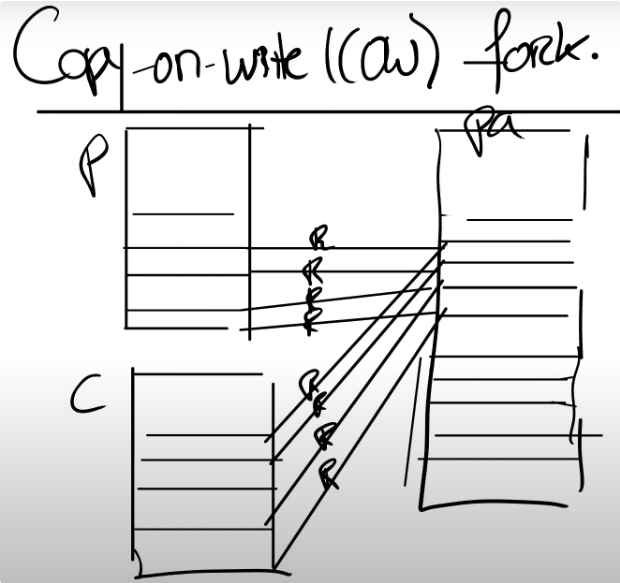 Copy-on-write (COW) fork.
P
Pa
R
R
R
R
C
R
R
R
R